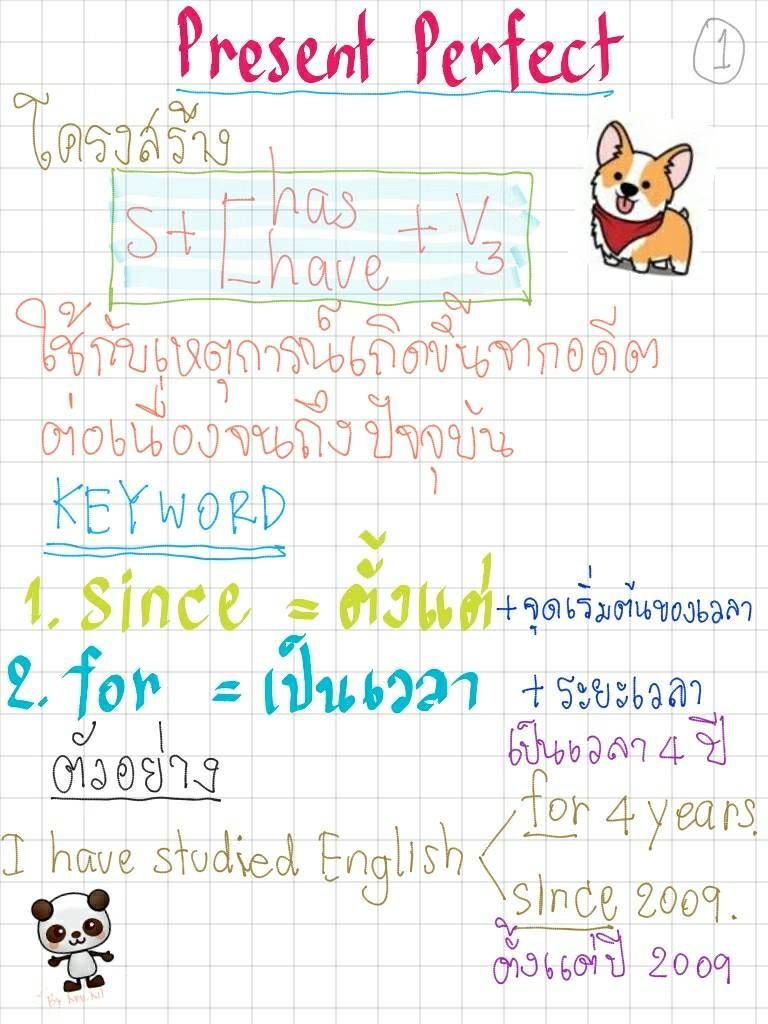 Present Perfect
1
โครงสร้าง
S + [ has / have + V3
ใช้กับเหตุการณ์เกิดขึ้นจากอดีต
ต่อเนื่องจนถึงปัจจุบัน
KEYWORD
1. since = ตั้งแต่ + จุดเริ่มต้นของเวลา
2. for = เป็นเวลา + ระยะเวลา
เป็นเวลา 4 ปี
ตัวอย่าง
for 4 years.
I have studied English
since 2009.
ตั้งแต่ปี 2009
By